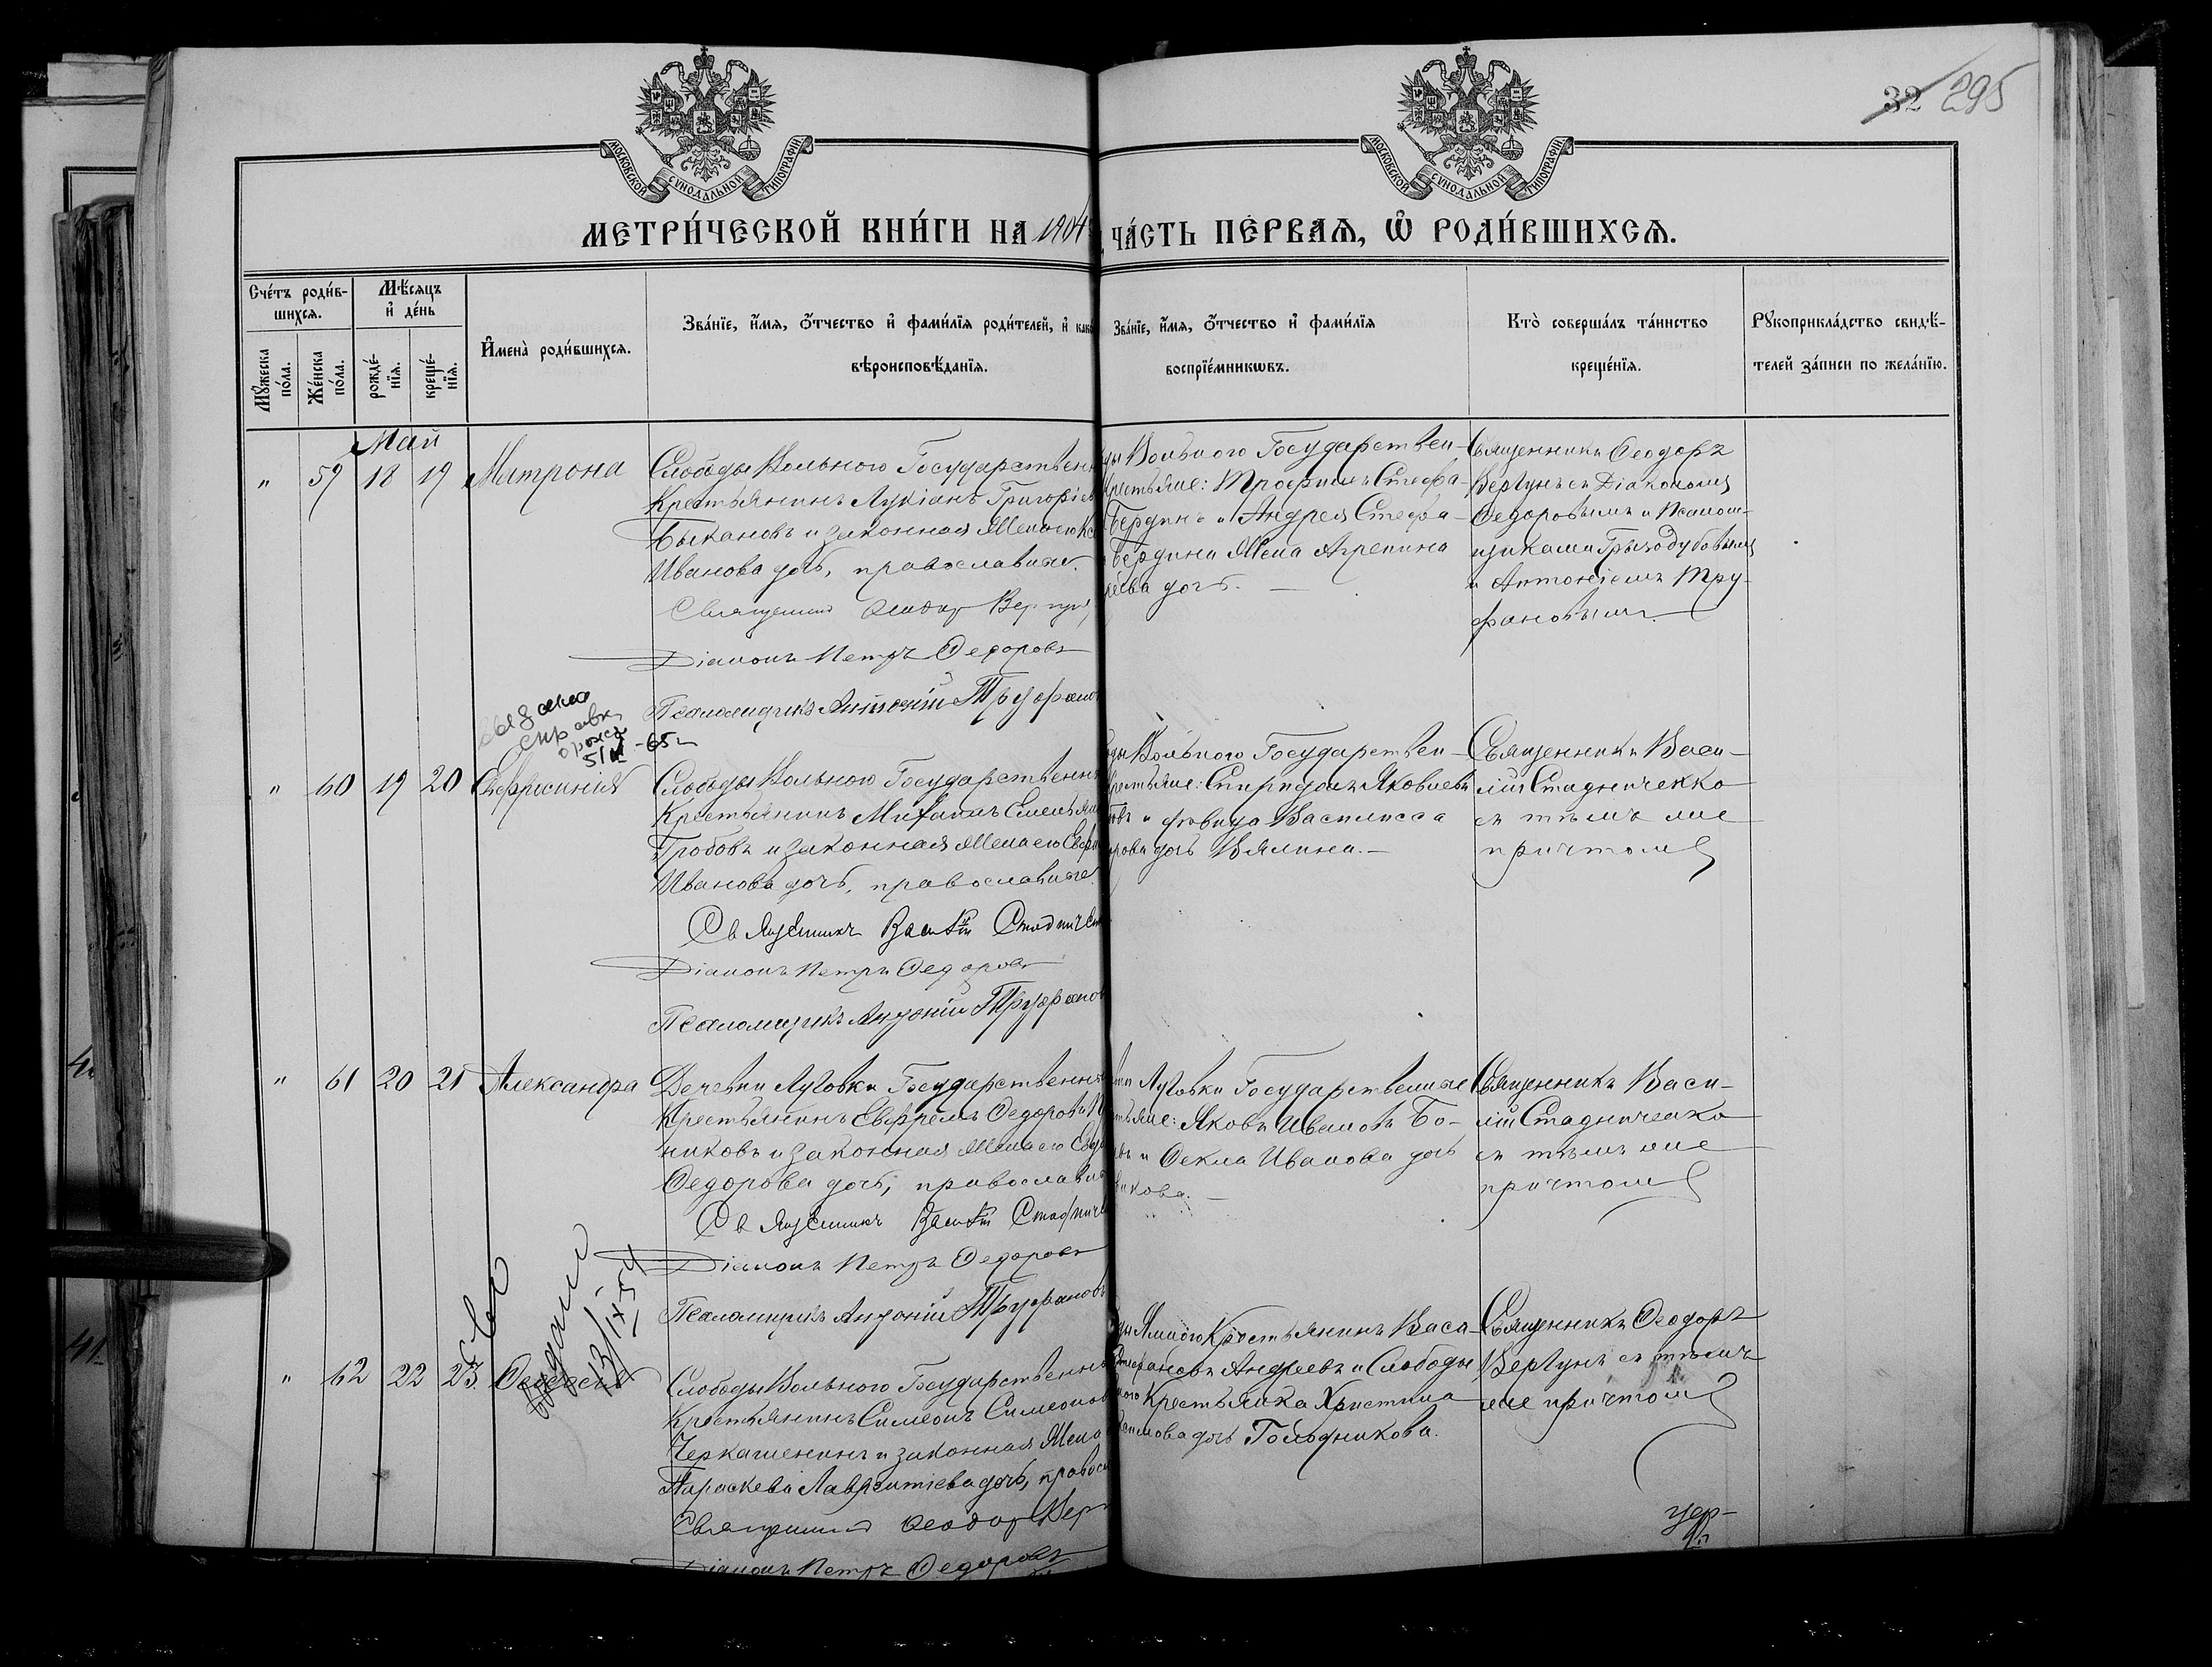 32 295
МОСКОВСКОЙ СѴНОДАЛЬНОЙ ТИПОГРАФІИ
МОСКОВСКОЙ СѴНОДАЛЬНОЙ ТИПОГРАФІИ
МЕТРИ́ЧЕСКОЙ КНИ́ГИ НА 1904
ЧА́СТЬ ПЕ́РВАЯ, Ѿ РОДИ́ВШИХСЯ.
Сче́тъ роди́в-
шихся.
Мѣ́сяцъ
и҆ де́нь
Мꙋ́жеска
по́ла.
Же́нска
по́ла.
рожде́-
нїя.
креще́-
нїя.
И҆мена̀ роди́вшихся.
Зва́нїе, и҆́мя, ѻ҆́тчество и҆ фами́лїя роди́телей, и҆ како
вѣроисповѣ́данїя.
Зва́нїе, и҆́мя, ѻ҆́тчество и҆ фами́лїя
воспрїе́мникѡвъ.
Кто̀ соверша́лъ та́инство
креще́нїя.
Рꙋкоприкла́дство свидѣ́-
телей за́писи по жела́нїю.
Май
" 59 18 19 Матрона
Слободы Вольного Государствен
Крестьянинъ Лукіанъ Григоріев
Быкановъ и законная жена его
Иванова дочь, православные.
Священникъ Ѳеодор Вергун
Діаконъ Петръ Ѳедоровъ
Псаломщикъ Антоній Труфанов
ды Вольного Государствен-
Крестьяне: Трофимъ Стефа-
Бердинъ и Андрея Стефа-
Бердина жена Агрепина
ева дочь. —
Священникъ Ѳеодоръ
Вергунъ съ Діакономъ
Ѳедоровымъ и Псалом-
щиками Грызодубовымъ
и Антоніемъ Тру-
фановымъ.
выдана
справка
о рожд
5/II -65 г
" 60 19 20 Евфросинія
Слободы Вольного Государственн
Крестьянинъ Михаилъ Емельян
Гробовъ и законная жена его Евф
Иванова дочь, православные.
Священникъ Василій Стадничен
Діаконъ Петръ Ѳедоровъ
Псаломщикъ Антоній Труфанов
ды Вольного Государствен-
Крестьяне: Спиридонъ Яковлевъ
овъ и дѣвица Василисса
орова дочь Вялина. —
Священникъ Васи-
лій Стадниченко
съ тѣмъ же
причтомъ
" 61 20 21 Александра
Деревни Луговки Государственн
Крестьянинъ Евфремъ Ѳедоровъ
никовъ и законная жена его Евд
Ѳедорова дочь, православн
Священникъ Василій Стаднич
Діаконъ Петръ Ѳедоровъ
Псаломщикъ Антоній Труфановъ
Луговки Государственные
Крестьяне: Яковъ Ивановъ Бо-
въ и Ѳекла Иванова дочь
никова. —
Священникъ Васи-
лій Стадниченко
съ тѣмъ же
причтомъ
Выдано
" 62 22 23
Слободы Вольного Государственн
Крестьянинъ Симеонъ Симеонов
Черкашенинъ и законная жена
Параскева Лаврентіева дочь, правосл
Священникъ Ѳеодор Вер
Діаконъ Петръ Ѳедоровъ
Крестьянинъ Васи-
Стефановъ Андреевъ и Слободы
ного Крестьянка Христина
симова дочь Голодникова.
Священникъ Ѳеодоръ
Вергунъ съ тѣмъ
же причтомъ